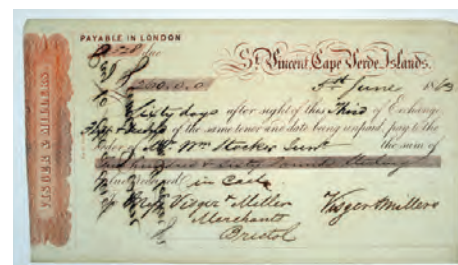 PAYABLE IN LONDON
due
St. Vincent, Cape Verde Islands.
£260.0.0 5th June 1863
Sixty days after sight of this Third of Exchange
First & Second of the same tenor and date being unpaid, pay to the
Order of Mr. Wm Stocker Junr the sum of
Two hundred & Sixty Pounds Sterling
Value received in Cash
Messrs Visger & Miller Visger & Millers
Merchants
Bristol
VISGER & MILLERS